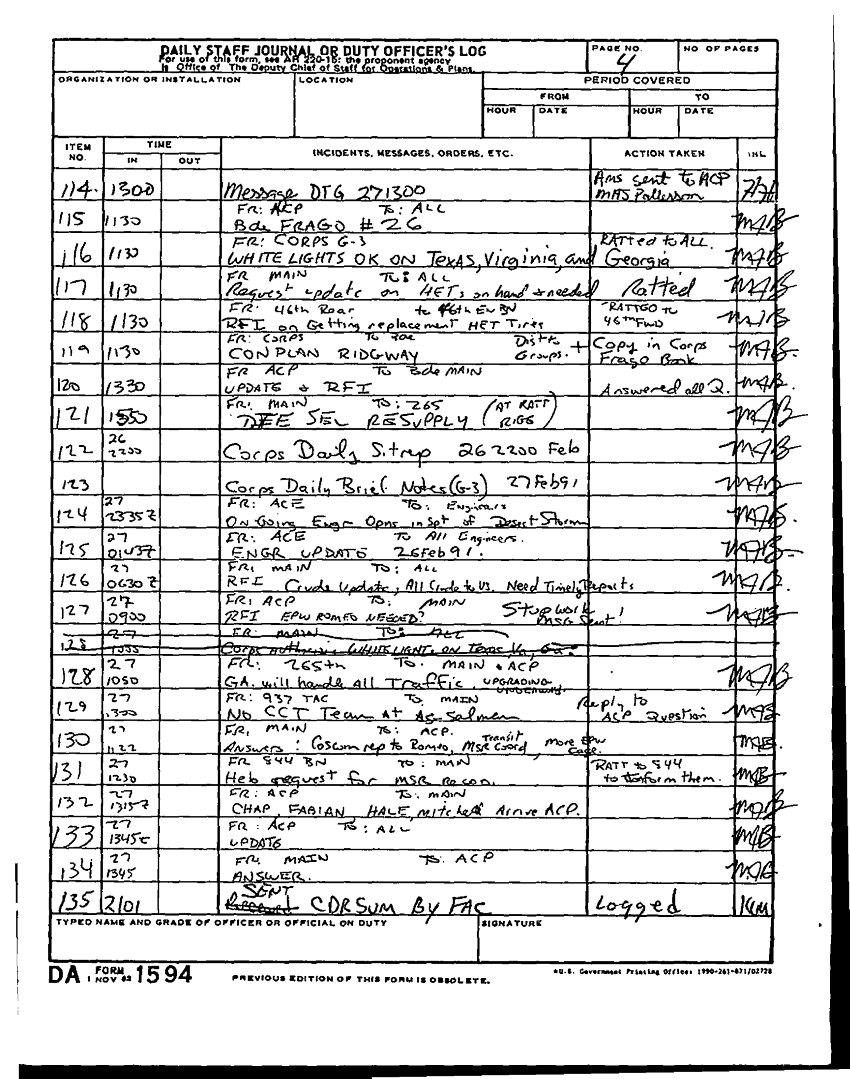 DAILY STAFF JOURNAL OR DUTY OFFICER'S LOG
For use of this form, see AR 220-15; the proponent agency
is Office of The Deputy Chief of Staff for Operations & Plans.
PAGE NO.
4
NO OF PAGES
ORGANIZATION OR INSTALLATION
LOCATION
PERIOD COVERED
FROM
TO
HOUR
DATE
HOUR
DATE
ITEM NO.
TIME
IN
OUT
INCIDENTS, MESSAGES, ORDERS, ETC.
ACTION TAKEN
INL
114. 1300 Message DTG 271300 Ans sent to ACP
MAJ Patterson
115 1130 FR: ACP TO: ALL
Bde FRAGO # 26 MAB
116 1130 FR: CORPS G-3 RATTed to ALL.
WHITE LIGHTS OK ON TEXAS, Virginia, and Georgia MAB
117 1130 FR MAIN TO: ALL
Request update on HETs on hand & needed Ratted MAB
118 1130 FR: 46th Rear to 46th EN BN RATTGO TO
RFI on Getting replacement HET Tires 46th FWD MAB
119 1130 FR: CORPS TO BDE Dist to Groups. + Copy in Corps
CONPLAN RIDGWAY Frago Book MAB
120 1330 FR ACP TO Bde MAIN
UPDATE & RFI Answered all Q. MAB
121 1550 FR: MAIN TO: 265 (AT RATT RIGG)
RESUPPLY MAB
122 26 2200 Corps Daily Sitrep 262200 Feb MAB
123 Corps Daily Brief Notes (G-3) 27Feb91 MAB
124 27 2335Z FR: ACE TO: Engineers
On Going Engr Opns in Spt of Desert Storm MAB
125 27 0143Z FR: ACE TO All Engineers.
ENGR UPDATE 26Feb91. MAB
126 27 0630Z FR: MAIN TO: ALL
RFI Crude Update, All Crude to US. Need Timely Reports MAB
127 27 0900 FR: ACP TO: MAIN Stop work
RFI EPW ROMEO NEEDED? MSG Sent! MAB
128 27 FR: MAIN TO: ALL
Corps WHITE LIGHTS ON Texas, Va, Ga.
128 27 1050 FR: 265th TO: MAIN & ACP
GA. will handle All Traffic, UPGRADING UNDERWAY. MAB
129 27 1300 FR: 937 TAC TO: MAIN Reply to
No CCT Team At As Salman ACP Question MAB
130 27 1122 FR: MAIN TO: ACP.
Answers: Coscom rep to Romeo, MSR Coord, Transit more EPW Cage. MAB
131 27 1230 FR 844 BN TO: MAIN RATT to 844
Helo request for MSR recon. to inform them. MAB
132 27 1315Z FR: ACP TO: MAIN
CHAP, FABIAN HALE, Mitchell Arrive ACP. MAB
133 27 1345C FR: ACP TO: ALL
UPDATE MAB
134 27 1345 FR: MAIN TO: ACP
ANSWER. MAB
135 2101 SENT
Received CDRSUM BY FAC Logged KM
TYPED NAME AND GRADE OF OFFICER OR OFFICIAL ON DUTY
SIGNATURE
DA FORM 1 NOV 62 1594
PREVIOUS EDITION OF THIS FORM IS OBSOLETE.
*U.S. Government Printing Office: 1990-261-871/02728